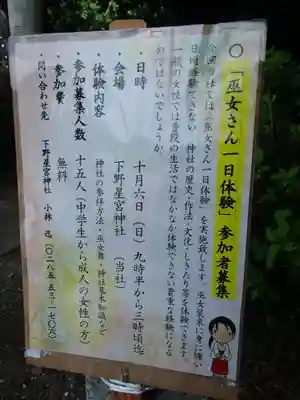 ○「巫女さん一日体験」参加者募集
今回当社では「巫女さん一日体験」を実施致します。巫女装束に身に纏い
日頃経験できない神社の歴史・作法・文化・しきたり等を体験できます。
一般の女性では普段の生活ではなかなか体験できない貴重な経験になる
のではないでしょうか。
・日時 十月六日（日）九時半から三時頃迄
・会場 下野星宮神社（当社）
・体験内容 神社の参拝方法・巫女舞・神社基本知識など
・参加募集人数 十五人（中学生から成人の女性の方）
・参加費 無料
・問い合わせ先 下野星宮神社 小林 迄（〇二八五‐五三‐一七〇六）